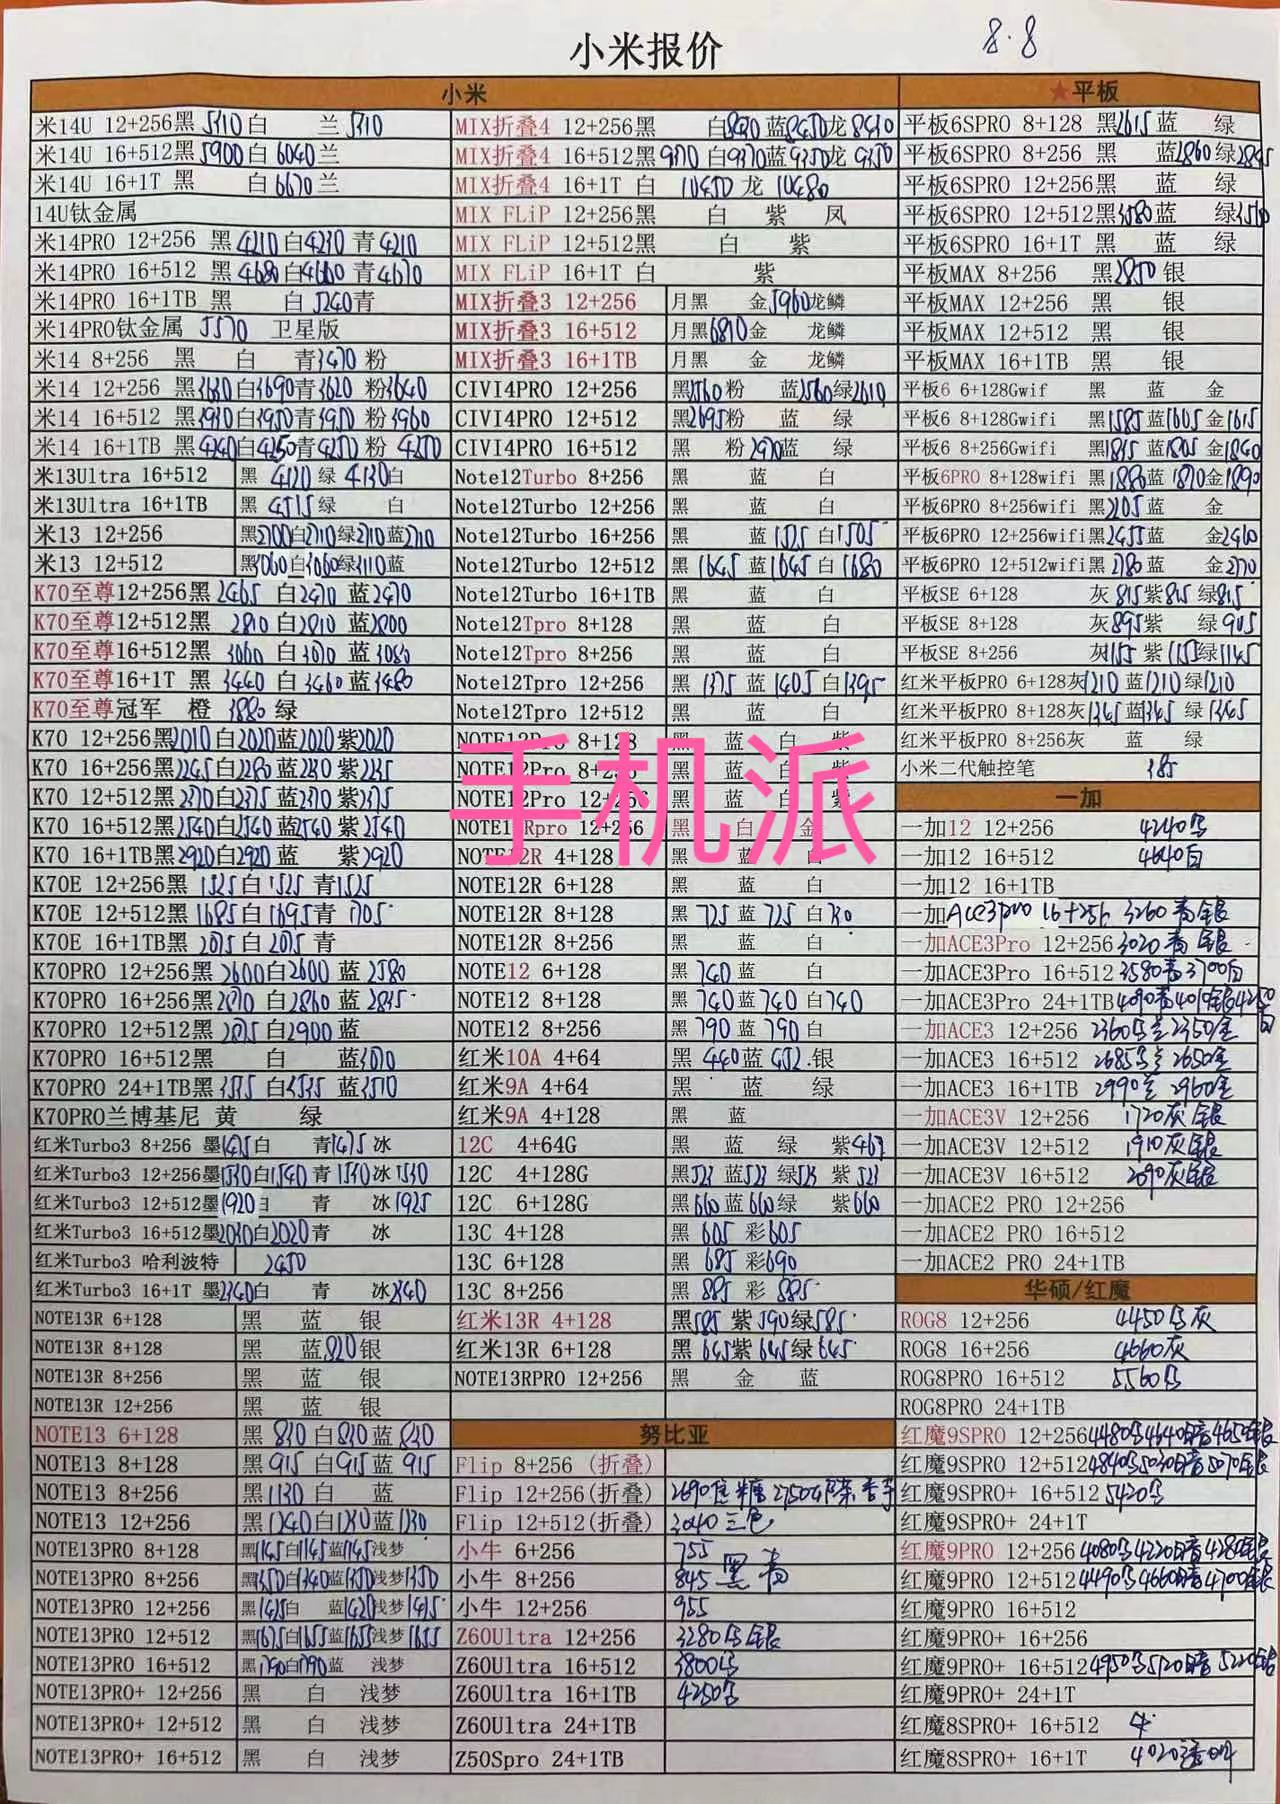 小米报价
8.8
小米
米14U 12+256黑 白 兰
米14U 16+512黑5900白6040兰
米14U 16+1T 黑 白6670兰
14U钛金属
米14PRO 12+256 黑4210白4230青4210
米14PRO 16+512 黑4680白4660青4670
米14PRO 16+1TB 黑 白5240青
米14PRO钛金属 5570 卫星版
米14 8+256 黑 白 青3470粉
米14 12+256 黑 白3690青3620 粉3640
米14 16+512 黑3930白3950青3950 粉3960
米14 16+1TB 黑4240白4250青4250 粉 4250
米13Ultra 16+512 黑 4120 绿 4130白
米13Ultra 16+1TB 黑 4515绿 白
米13 12+256 黑2700白2710绿2710蓝2710
米13 12+512 黑3060白3060绿3110蓝
K70至尊12+256黑 2465 白2470 蓝2470
K70至尊12+512黑 2810 白2810 蓝2800
K70至尊16+512黑 3060 白3070 蓝3080
K70至尊16+1T 黑 3440 白3460蓝3480
K70至尊冠军 橙 3880 绿
K70 12+256黑2010白2020蓝2020紫2020
K70 16+256黑2245白2230蓝2230紫2235
K70 12+512黑2370白2375蓝2370紫2375
K70 16+512黑2540白2540蓝2540紫2540
K70 16+1TB黑2920白2920蓝 紫2920
K70E 12+256黑 1525白1525青1525
K70E 12+512黑1685白1695青1705
K70E 16+1TB黑 2075白2075青
K70PRO 12+256黑2600白2600 蓝 2580
K70PRO 16+256黑2870 白2860 蓝 2835
K70PRO 12+512黑 白2900 蓝
K70PRO 16+512黑 白 蓝3070
K70PRO 24+1TB黑3535 白3535 蓝3510
K70PRO兰博基尼 黄 绿
红米Turbo3 8+256 墨1475白 青1475冰
红米Turbo3 12+256墨1530白1540青1530冰1530
红米Turbo3 12+512墨1920白 青 冰1925
红米Turbo3 16+512墨2030白2020青 冰
红米Turbo3 哈利波特 2450
红米Turbo3 16+1T 墨2340白 青 冰2340
NOTE13R 6+128 黑 蓝 银
NOTE13R 8+128 黑 蓝820银
NOTE13R 8+256 黑 蓝 银
NOTE13R 12+256 黑 蓝 银
NOTE13 6+128 黑 830白830蓝 830
NOTE13 8+128 黑 915 白915蓝 915
NOTE13 8+256 黑1130白 蓝
NOTE13 12+256 黑 白 蓝
NOTE13PRO 8+128 黑1145白1145蓝1145浅梦
NOTE13PRO 8+256 黑1350白1340蓝1350浅梦1350
NOTE13PRO 12+256 黑1425白 蓝1425浅梦1435
NOTE13PRO 12+512 黑1675白1655蓝1655浅梦1655
NOTE13PRO 16+512 黑1790白1790蓝 浅梦
NOTE13PRO+ 12+256 黑 白 浅梦
NOTE13PRO+ 12+512 黑 白 浅梦
NOTE13PRO+ 16+512 黑 白 浅梦
MIX折叠4 12+256黑 白 蓝8450龙
MIX折叠4 16+512黑 白9370蓝9350龙 9350
MIX折叠4 16+1T 白 10450 龙 10480
MIX FLiP 12+256黑 白 紫 凤
MIX FLiP 12+512黑 白 紫
MIX FLiP 16+1T 白 紫
MIX折叠3 12+256 月黑 金5960龙鳞
MIX折叠3 16+512 月黑6810金 龙鳞
MIX折叠3 16+1TB 月黑 金 龙鳞
CIVI4PRO 12+256 黑2560粉 蓝2560绿2610
CIVI4PRO 12+512 黑2695粉 蓝 绿
CIVI4PRO 16+512 黑 粉2970蓝 绿
Note12Turbo 8+256 黑 蓝 白
Note12Turbo 12+256 黑 蓝 白
Note12Turbo 16+256 黑 蓝1525白1505
Note12Turbo 12+512 黑1645蓝1645白1680
Note12Turbo 16+1TB 黑 蓝 白
Note12Tpro 8+128 黑 蓝 白
Note12Tpro 8+256 黑 蓝 白
Note12Tpro 12+256 黑 1375蓝1405白1395
Note12Tpro 12+512 黑 蓝 白
NOTE12Pro 8+128 黑 蓝 白 紫
NOTE12Pro 8+256 黑 蓝 白 紫
NOTE12Pro 12+256 黑 蓝 白 紫
手机派
NOTE1 Rpro 12+256 黑 白 金
NOTE12R 4+128 黑 蓝 白
NOTE12R 6+128 黑 蓝 白
NOTE12R 8+128 黑 725 蓝 725 白730
NOTE12R 8+256 黑 蓝 白
NOTE12 6+128 黑 740蓝 白
NOTE12 8+128 黑 740蓝740 白740
NOTE12 8+256 黑 790蓝790白
红米10A 4+64 黑 440蓝452.银
红米9A 4+64 黑 蓝 绿
红米9A 4+128 黑 蓝
12C 4+64G 黑 蓝 绿 紫463
12C 4+128G 黑523蓝523绿523紫 523
12C 6+128G 黑660蓝660绿 紫660
13C 4+128 黑 605 彩605
13C 6+128 黑 685 彩690
13C 8+256 黑 885 彩 885
红米13R 4+128 黑585 紫590绿585
红米13R 6+128 黑 645紫645绿645
NOTE13RPRO 12+256 黑 金 蓝
努比亚
Flip 8+256 (折叠)
Flip 12+256(折叠) 2690焦糖2750
Flip 12+512(折叠) 3040三色
小牛 6+256 755
小牛 8+256 845 黑 青
小牛 12+256 955
Z60Ultra 12+256 3280黑银
Z60Ultra 16+512 3800黑
Z60Ultra 16+1TB 4250黑
Z60Ultra 24+1TB
Z50Spro 24+1TB
★平板
平板6SPRO 8+128 黑2615蓝 绿
平板6SPRO 8+256 黑 蓝2860绿
平板6SPRO 12+256黑 蓝 绿
平板6SPRO 12+512黑3580蓝 绿
平板6SPRO 16+1T 黑 蓝 绿
平板MAX 8+256 黑2850银
平板MAX 12+256 黑 银
平板MAX 12+512 黑 银
平板MAX 16+1TB 黑 银
平板6 6+128Gwif 黑 蓝 金
平板6 8+128Gwifi 黑1585蓝1605金1615
平板6 8+256Gwifi 黑 蓝1805金1840
平板6PRO 8+128wifi 黑1880蓝1870金1890
平板6PRO 8+256wifi 黑2105蓝 金
平板6PRO 12+256wifi黑2455蓝 金2460
平板6PRO 12+512wifi黑2780蓝 金2770
平板SE 6+128 灰 815紫815 绿815
平板SE 8+128 灰895紫 绿905
平板SE 8+256 灰1155 紫1155绿1145
红米平板PRO 6+128灰1210 蓝1210绿1210
红米平板PRO 8+128灰1345蓝1345 绿1345
红米平板PRO 8+256灰 蓝 绿
小米二代触控笔 385
一加
一加12 12+256 4240黑
一加12 16+512 4640白
一加12 16+1TB
一加Ace3pro 16+256 3260青银
一加ACE3Pro 12+256 3020青银
一加ACE3Pro 16+512 3580青3700白
一加ACE3Pro 24+1TB4090青4010银4250白
一加ACE3 12+256 2360黑兰2350金
一加ACE3 16+512 2685黑兰2650金
一加ACE3 16+1TB 2990兰 2960金
一加ACE3V 12+256 1720灰银
一加ACE3V 12+512 1910灰银
一加ACE3V 16+512 2090灰银
一加ACE2 PRO 12+256
一加ACE2 PRO 16+512
一加ACE2 PRO 24+1TB
华硕/红魔
ROG8 12+256 4450黑灰
ROG8 16+256 4660灰
ROG8PRO 16+512 5560黑
ROG8PRO 24+1TB
红魔9SPRO 12+256 4480黑4640暗4650银
红魔9SPRO 12+512 4840黑5030暗5070银
红魔9SPRO+ 16+512 5420黑
红魔9SPRO+ 24+1T
红魔9PRO 12+256 4080黑4220暗 银
红魔9PRO 12+512 4490黑4660暗4700银
红魔9PRO 16+512
红魔9PRO+ 16+256
红魔9PRO+ 16+512 4950黑5120暗 5220银
红魔9PRO+ 24+1T
红魔8SPRO+ 16+512
红魔8SPRO+ 16+1T 4020透明